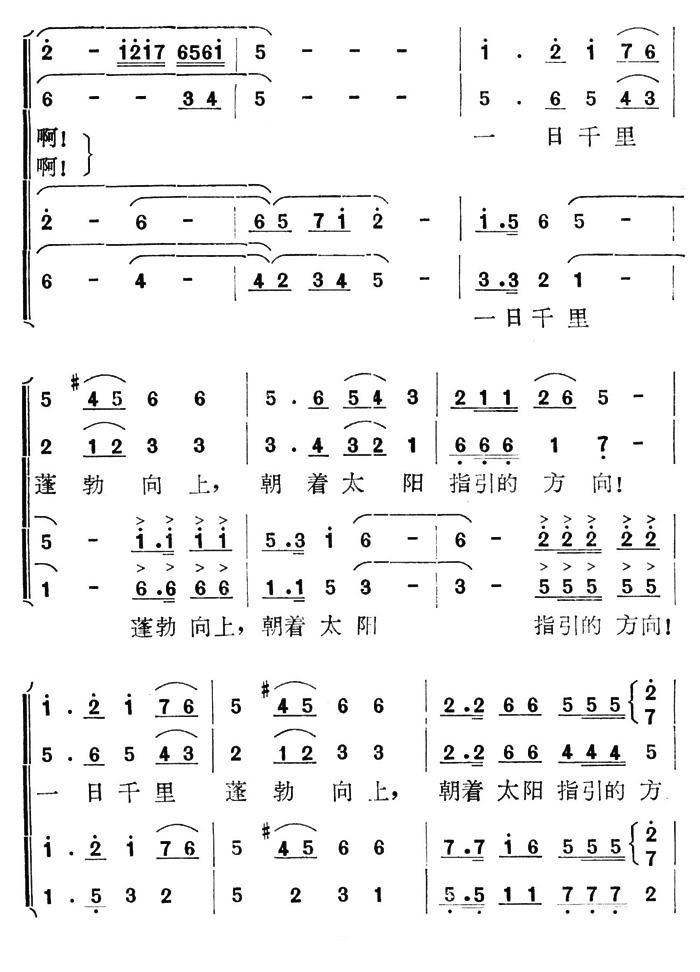 2̇ - i̇2̇i̇7 656i̇ | 5 - - - | i̇ . 2̇ i̇ 76
6 - - 34 | 5 - - - | 5 . 6 5 43
啊! 一 日千里
啊!
2̇ - 6 - | 65 7i̇ 2̇ - | i̇.5 6 5 -
6 - 4 - | 42 34 5 - | 3.3 2 1 -
一日千里
5 #45 6 6 | 5 . 6 54 3 | 211 26 5 -
2 12 3 3 | 3 . 4 32 1 | 6̣6̣6̣ 1 7̣ -
蓬 勃 向 上, 朝 着 太 阳 指引的 方 向!
5 - i̇.i̇ i̇i̇ | 5.3 i̇ 6 - | 6 - 2̇2̇2̇ 2̇2̇
1 - 6.6 66 | 1.1 5 3 - | 3 - 555 55
蓬勃 向上, 朝着 太 阳 指引的 方向!
i̇ . 2̇ i̇ 76 | 5 #45 6 6 | 2.2 66 555 {2̇ 7
5 . 6 5 43 | 2 12 3 3 | 2.2 66 444 5
一 日千里 蓬 勃 向 上, 朝着 太阳 指引的 方
i̇ . 2̇ i̇ 76 | 5 #45 6 6 | 7.7 i̇6 555 {2̇ 7
1 . 5̣ 3 2 | 5 2 3 1 | 5̣.5̣ 11 7̣7̣7̣ 2